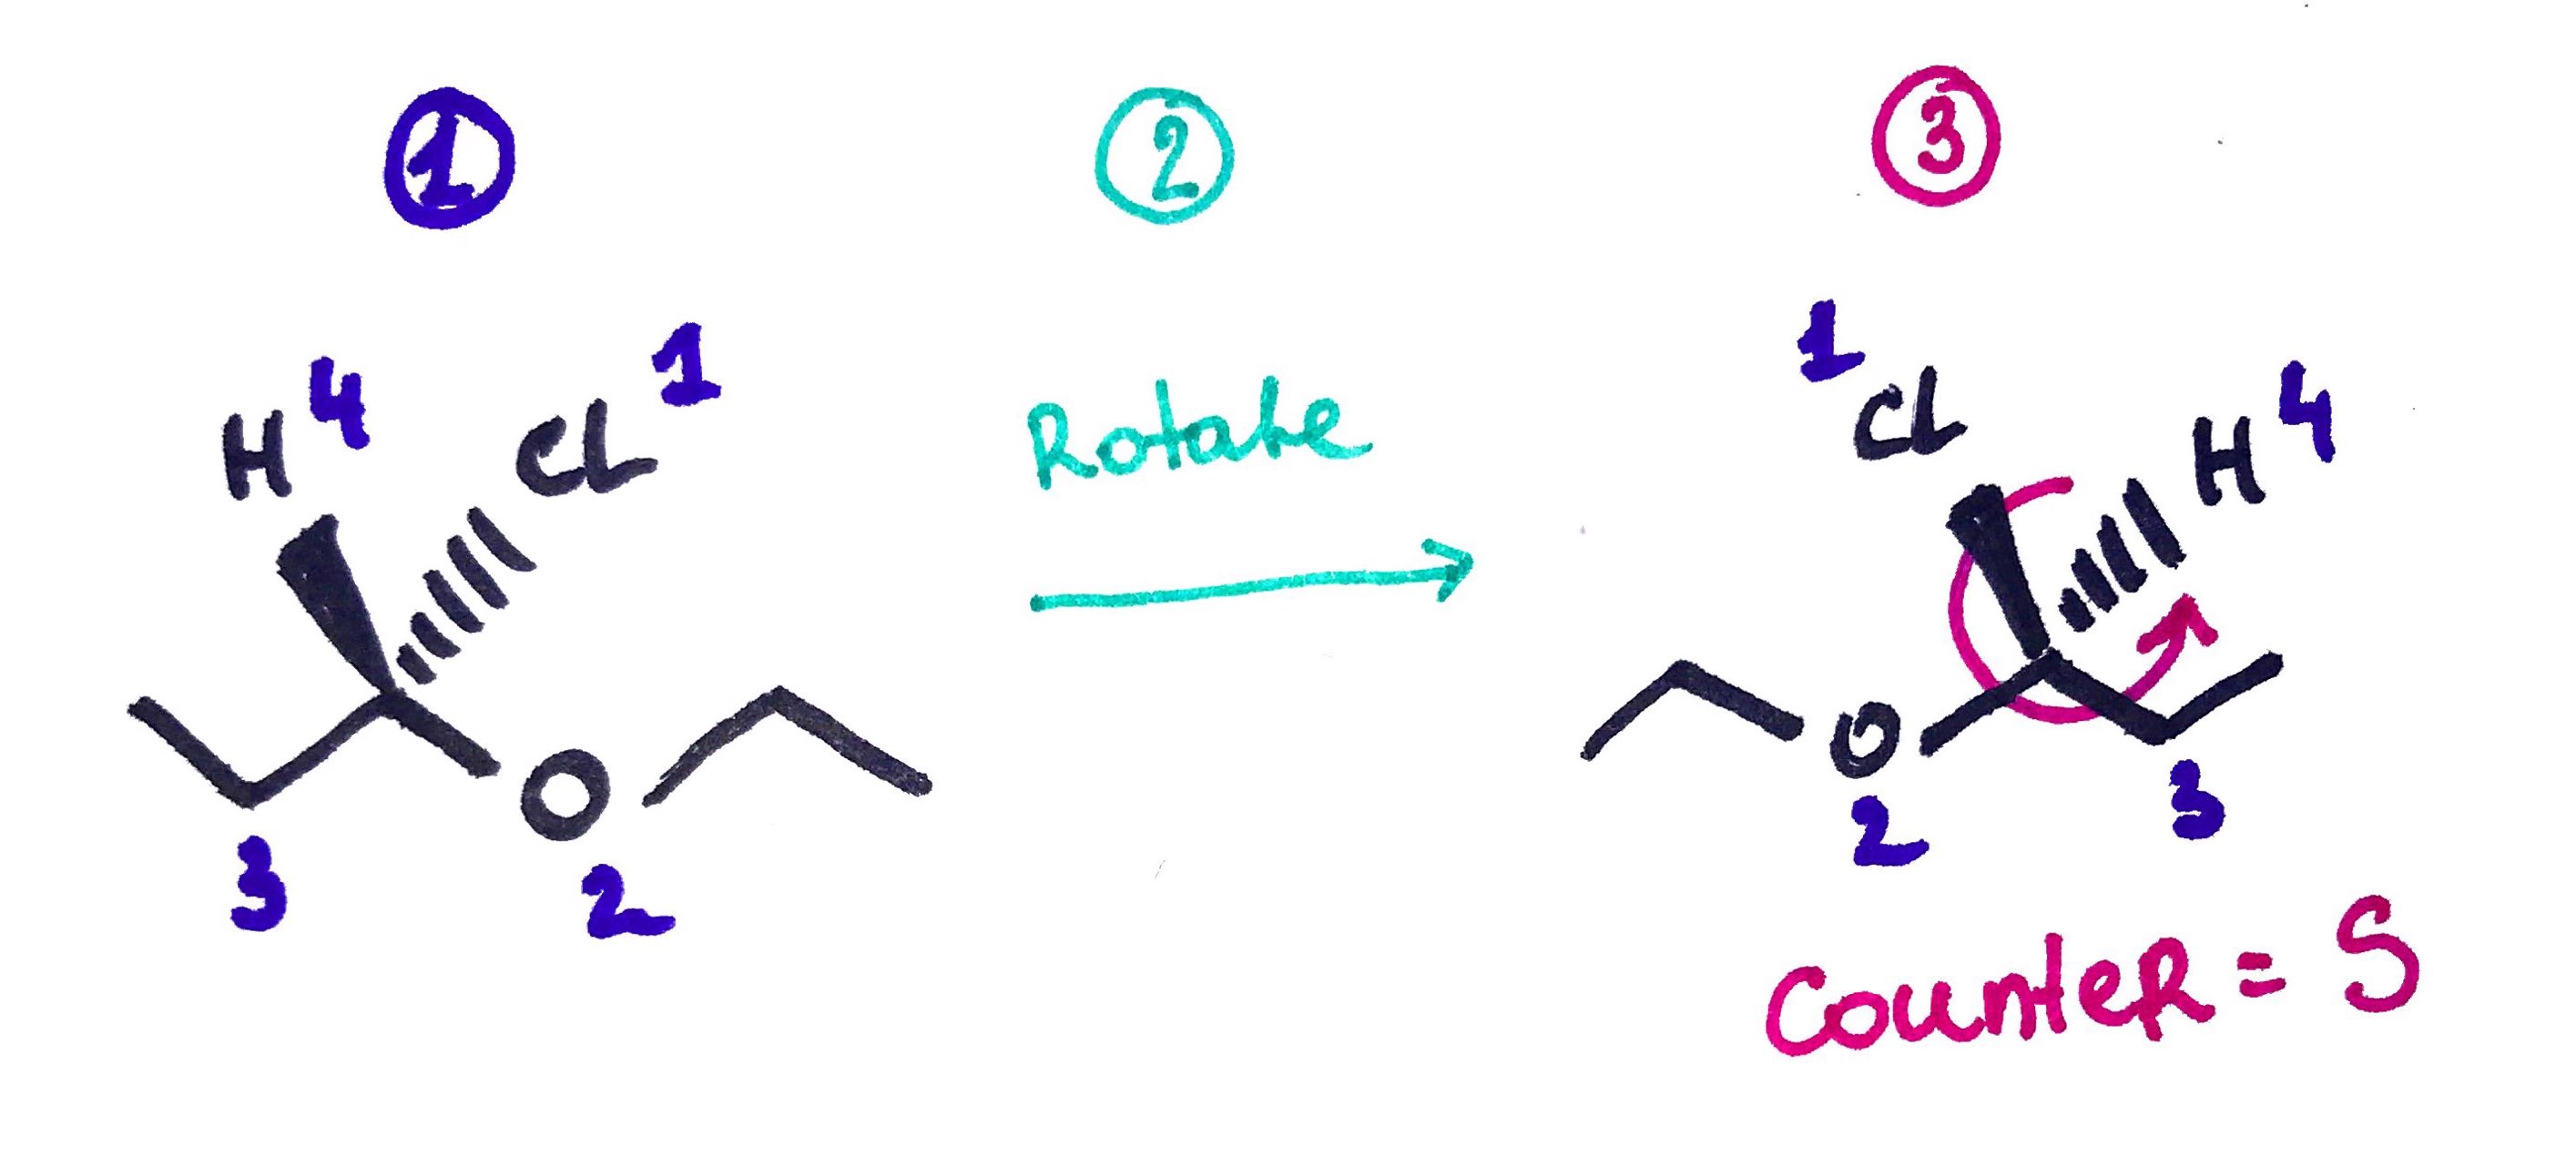 1 2 3
H 4 Cl 1
3 O 2
Rotate
1 Cl H 4
O 2 3
Counter = S